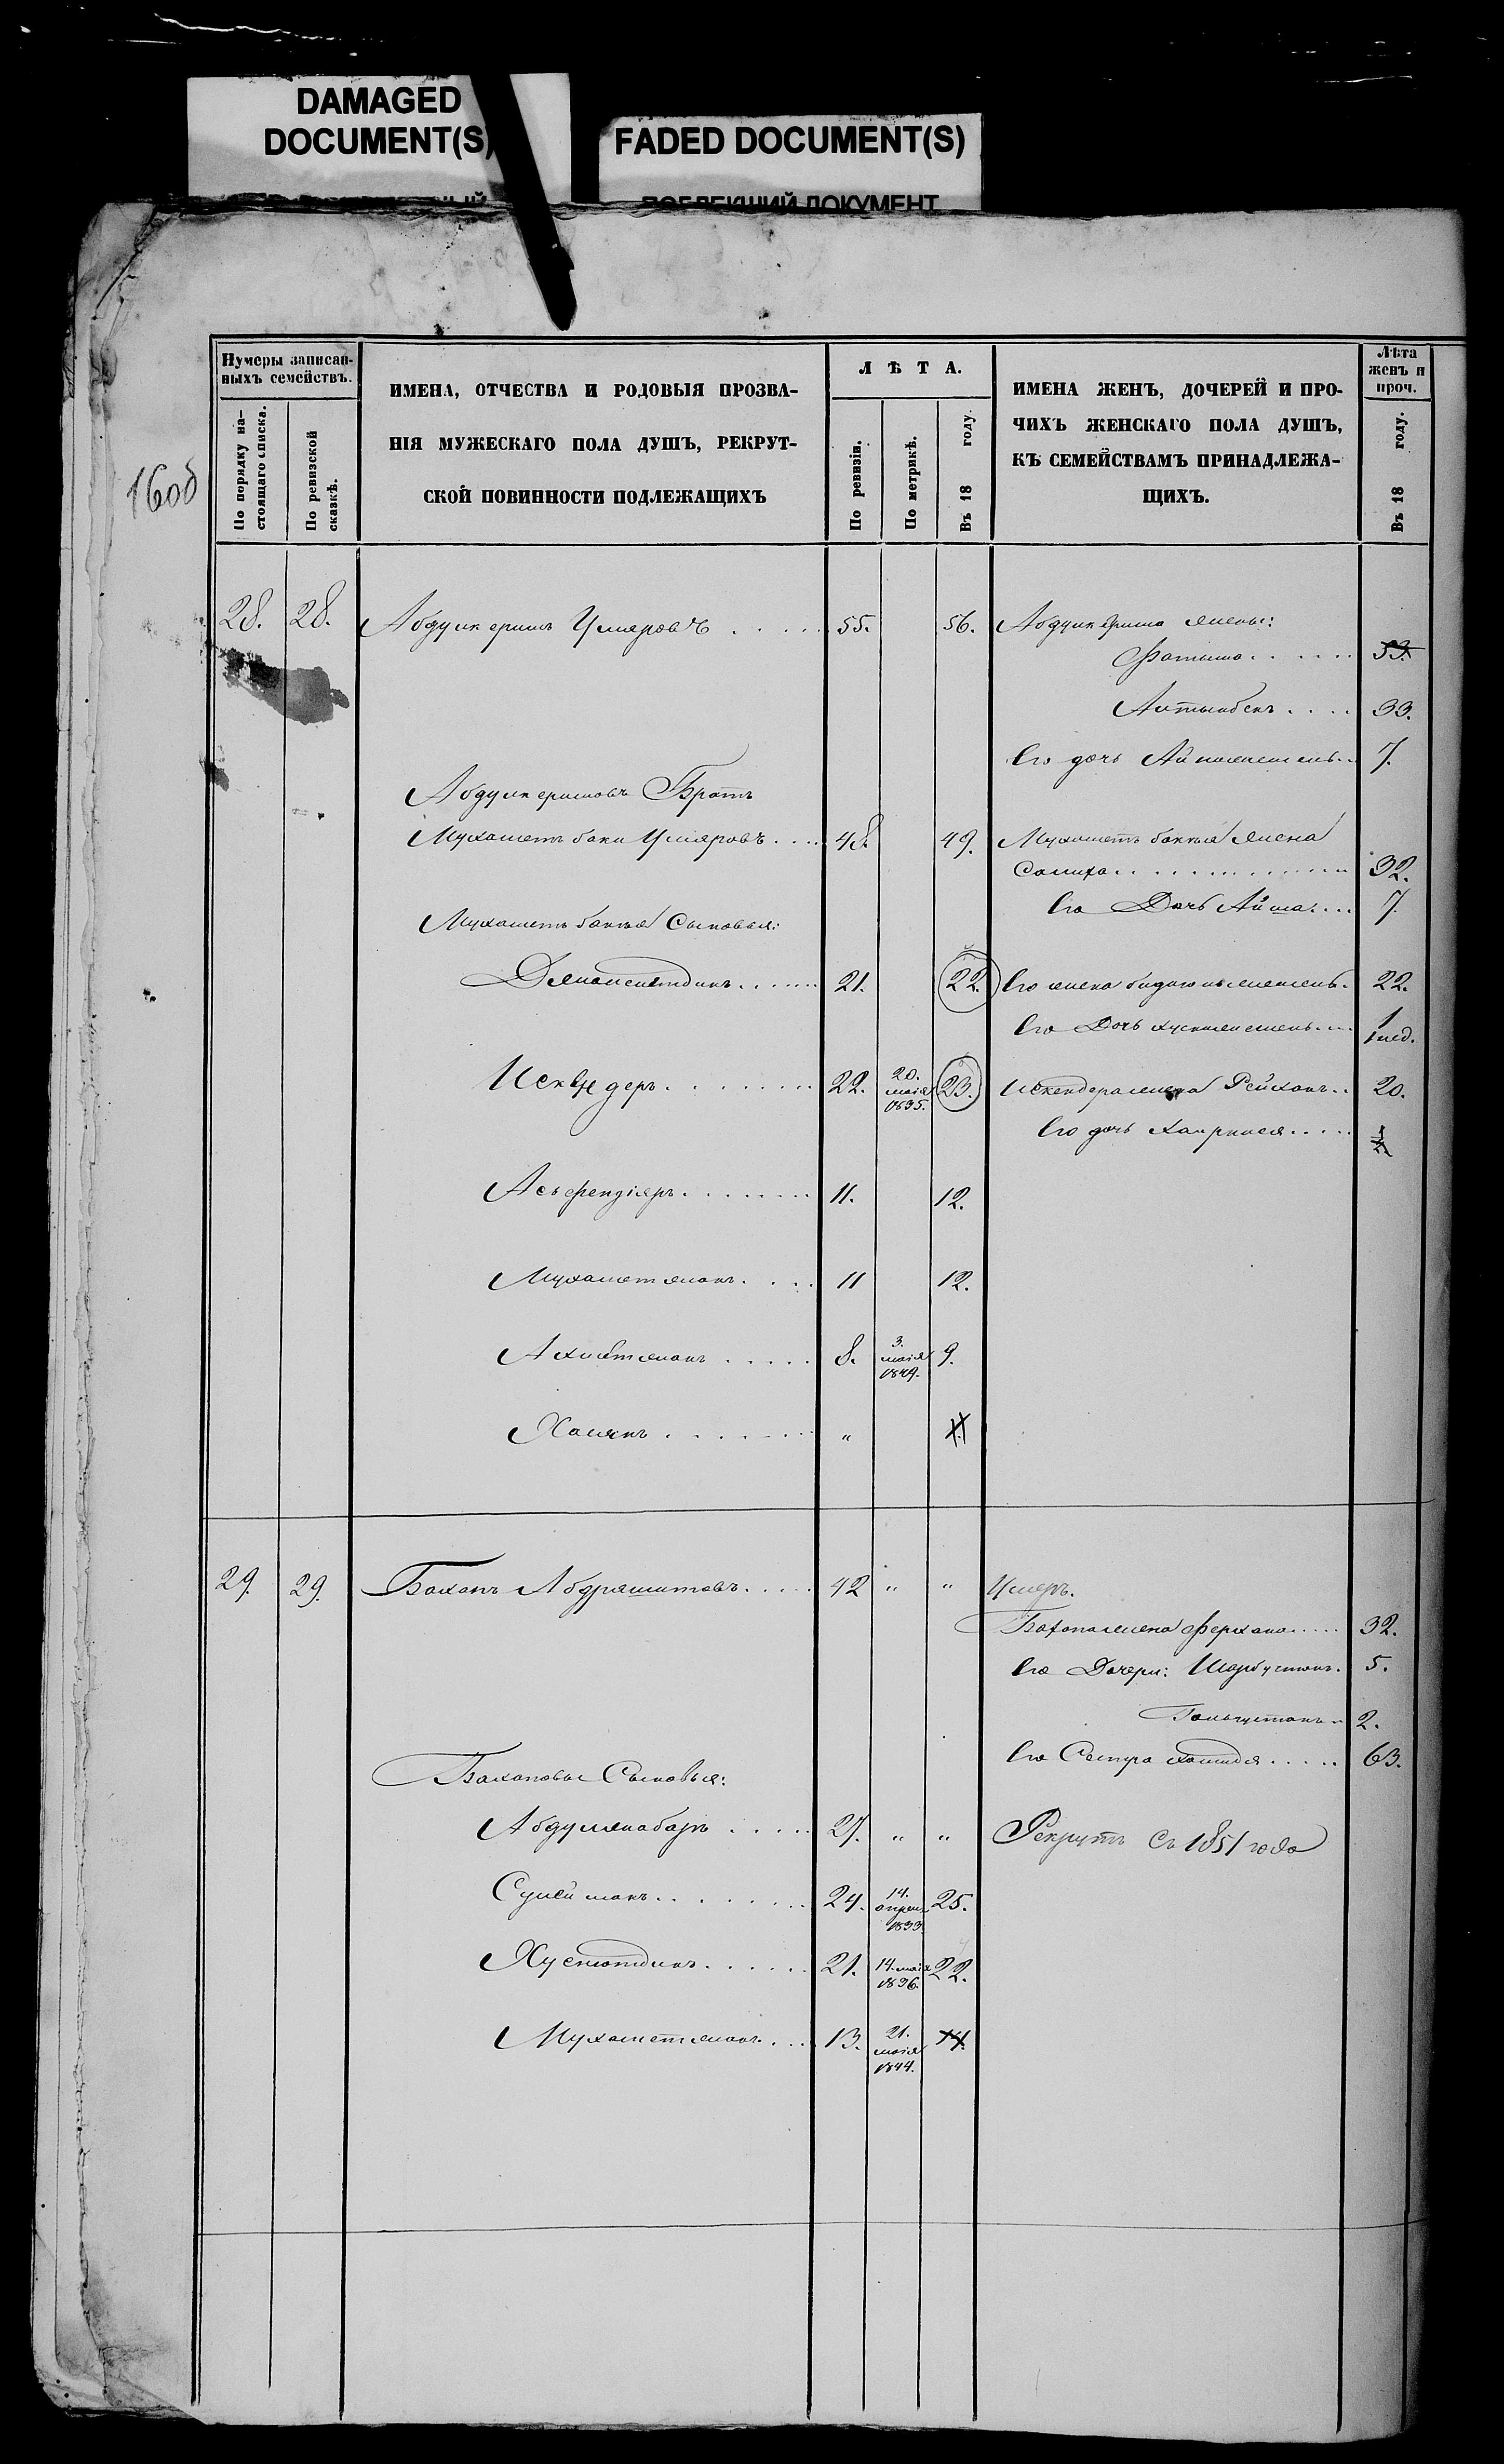 DAMAGED
DOCUMENT(S)
FADED DOCUMENT(S)
ДОКУМЕНТ
160б
Нумеры записан-
ныхъ семействъ.
По порядку на-
стоящаго списка.
По ревизской
сказкѣ.
ИМЕНА, ОТЧЕСТВА И РОДОВЫЯ ПРОЗВА-
НІЯ МУЖЕСКАГО ПОЛА ДУШЪ, РЕКРУТ-
СКОЙ ПОВИННОСТИ ПОДЛЕЖАЩИХЪ
ЛѢТА.
По ревизіи.
По метрикѣ.
Въ 18 году.
ИМЕНА ЖЕНЪ, ДОЧЕРЕЙ И ПРО-
ЧИХЪ ЖЕНСКАГО ПОЛА ДУШЪ,
КЪ СЕМЕЙСТВАМЪ ПРИНАДЛЕЖА-
ЩИХЪ.
Лѣта
женъ и
проч.
Въ 18 году.
28. 28. Абдулкеримъ Умяровъ 55. 56. Абдулкерима жены:
Фатима 53.
Алтынбек 33.
Его дочь 7.
Абдулкеримовъ Братъ
Мухаметъ баки Умяровъ 48. 49. Мухаметъ бакія жена
Салиха 32.
Его Дочь Айша 7.
Мухаметъ бакія Сыновья:
21. 22. Его жена 22.
Его Дочь 1 мѣс.
Искендеръ 22. 20. маія 1835. 23. Искендера жена Рейхан 20.
Его дочь
Асьфендіяръ 11. 12.
Мухаметжанъ 11 12.
Ахметжанъ 8. 3. маія 1849. 9.
Халянъ "
29. 29. Баханъ Абдряшитовъ 42 " " Умеръ.
Бахана жена Ферхана 32.
Его Дочери: Шарбустан 5.
Гольчустанъ 2.
Его Сестра Хамидя 63.
Бахановы Сыновья:
Абдулжабаръ 27. " " Рекрутъ съ 1851 года
Сулейманъ 24. 14. апрел 1833. 25.
Хуснютдинъ 21. 14. маія 1836. 22.
Мухаметжанъ 13. 21. маія 1844. 14.